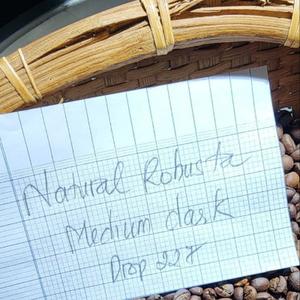 Natural Robusta
Medium dask
Drop 227